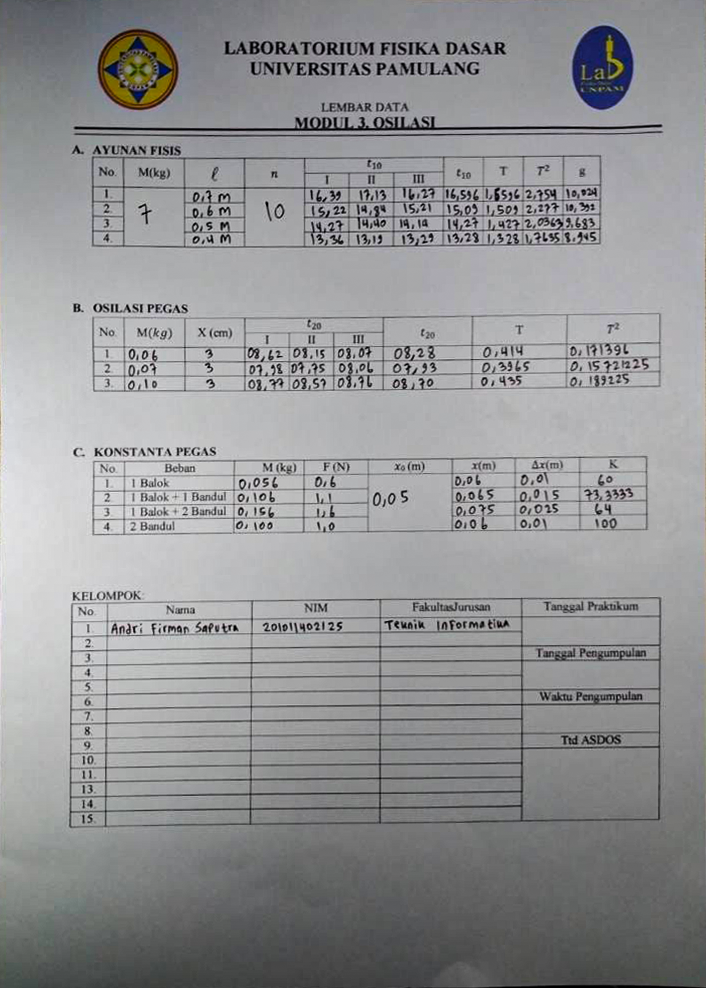 LABORATORIUM FISIKA DASAR
UNIVERSITAS PAMULANG
Lab
UNPAM
LEMBAR DATA
MODUL 3. OSILASI
A. AYUNAN FISIS
No. M(kg) ℓ n t10 t10 T T² g
I II III
1. 7 0,7 M 10 16,39 17,13 16,27 16,596 1,6596 2,754 10,024
2. 0,6 M 15,22 14,84 15,21 15,09 1,509 2,277 10,392
3. 0,5 M 14,27 14,40 14,14 14,27 1,427 2,0363 9,683
4. 0,4 M 13,36 13,19 13,29 13,28 1,328 1,7635 8,945
B. OSILASI PEGAS
No. M(kg) X (cm) t20 t20 T T²
I II III
1. 0,06 3 08,62 08,15 08,07 08,28 0,414 0,171396
2. 0,07 3 07,98 07,75 08,06 07,93 0,3965 0,15721225
3. 0,10 3 08,77 08,57 08,76 08,70 0,435 0,189225
C. KONSTANTA PEGAS
No. Beban M (kg) F (N) x₀ (m) x(m) Δx(m) K
1. 1 Balok 0,056 0,6 0,05 0,06 0,01 60
2. 1 Balok + 1 Bandul 0,106 1,1 0,065 0,015 73,3333
3. 1 Balok + 2 Bandul 0,156 1,6 0,075 0,025 64
4. 2 Bandul 0,100 1,0 0,06 0,01 100
KELOMPOK:
No. Nama NIM FakultasJurusan Tanggal Praktikum
1. Andri Firman Saputra 201011402125 Teknik Informatika
2.
3. Tanggal Pengumpulan
4.
5.
6. Waktu Pengumpulan
7.
8.
9. Ttd ASDOS
10.
11.
13.
14.
15.